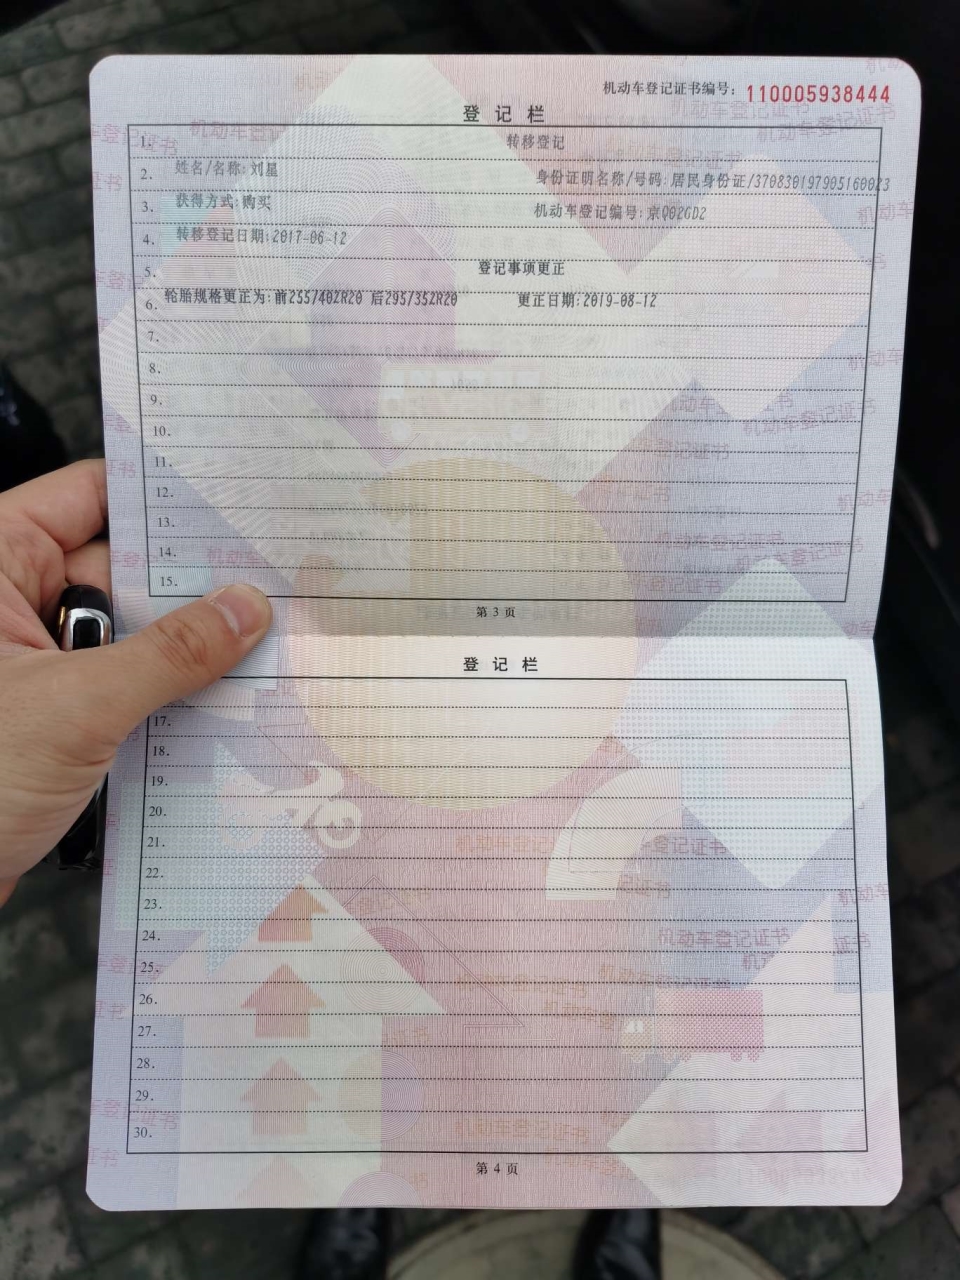 机动车登记证书编号：110005938444
登记栏
1. 转移登记
2. 姓名/名称:刘星 身份证明名称/号码:居民身份证/370830197905160023
3. 获得方式:购买 机动车登记编号:京Q02GD2
4. 转移登记日期:2017-06-12
5. 登记事项更正
6. 轮胎规格更正为:前255/40ZR20 后295/35ZR20 更正日期:2019-08-12
7.
8.
9.
10.
11.
12.
13.
14.
15.
第 3 页
登记栏
17.
18.
19.
20.
21.
22.
23.
24.
25.
26.
27.
28.
29.
30.
第 4 页